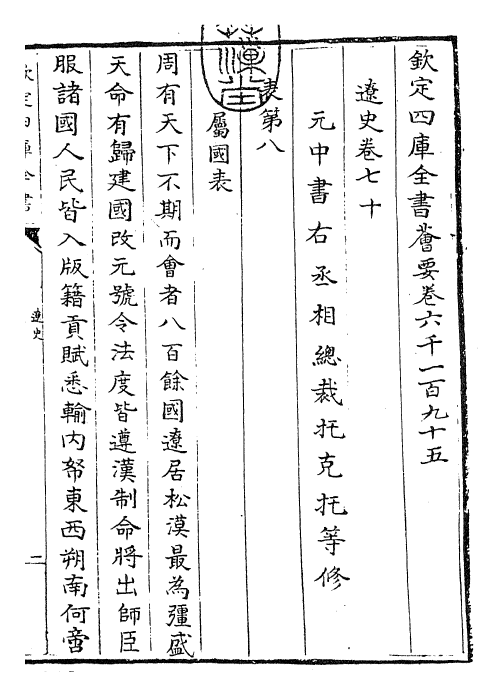 欽定四庫全書薈要卷六千一百九十五
遼史卷七十
元中書右丞相總裁托克托等修
表第八
屬國表
周有天下不期而會者八百餘國遼居松漠最為彊盛
天命有歸建國改元號令法度皆遵漢制命將出師臣
服諸國人民皆入版籍貢賦悉輸内帑東西朔南何啻
欽定四庫全書
遼史
二